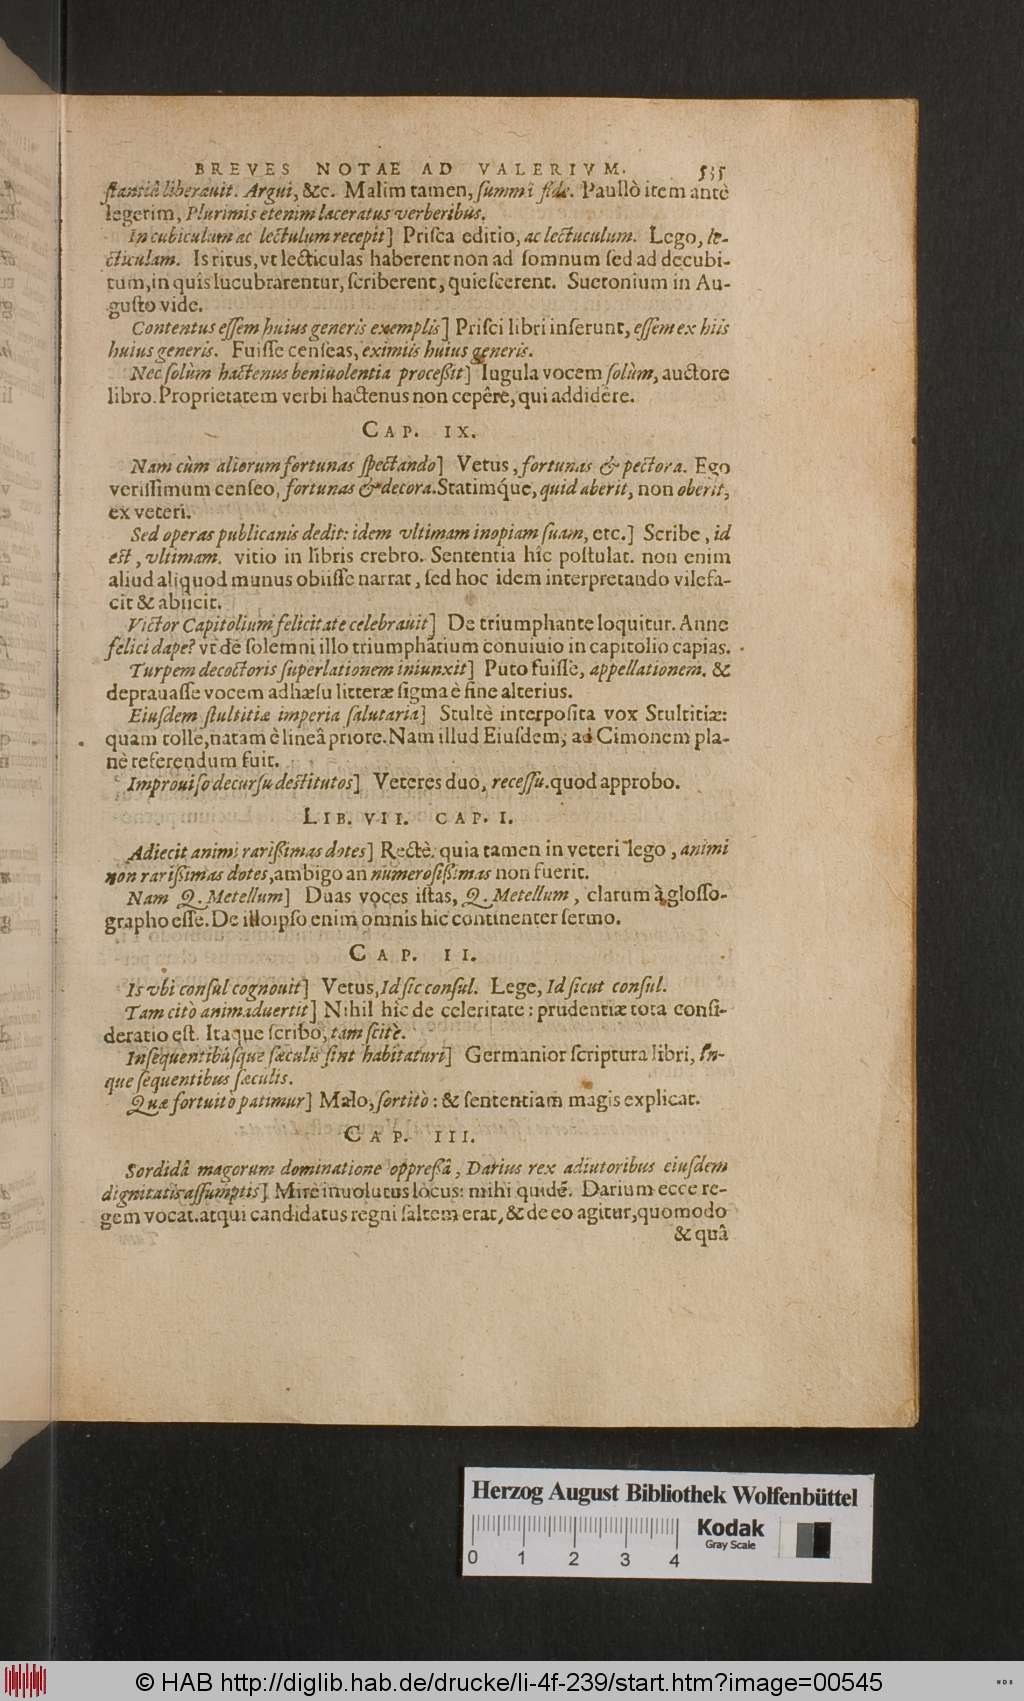 BREVES NOTAE AD VALERIVM. 535
stantiâ liberauit. Argui, &c. Malim tamen, summi fide. Paullò item antè
legerim, Plurimis etenim laceratus verberibus.
In cubiculum ac lectulum recepit] Prisca editio, ac lectuculum. Lego, le-
cticulam. Is ritus, vt lecticulas haberent non ad somnum sed ad decubi-
tum, in quîs lucubrarentur, scriberent, quiescerent. Suetonium in Au-
gusto vide.
Contentus essem huius generis exemplis] Prisci libri inserunt, essem ex hiis
huius generis. Fuisse censeas, eximiis huius generis.
Nec solùm hactenus beniuolentia processit] Iugula vocem solùm, auctore
libro. Proprietatem verbi hactenus non cepêre, qui addidêre.
CAP. IX.
Nam cùm aliorum fortunas spectando] Vetus, fortunas & pectora. Ego
verissimum censeo, fortunas & decora. Statimq́ue, quid aberit, non oberit,
ex veteri.
Sed operas publicanis dedit: idem vltimam inopiam suam, etc.] Scribe, id
est, vltimam. vitio in libris crebro. Sententia hîc postulat. non enim
aliud aliquod munus obiisse narrat, sed hoc idem interpretando vilefa-
cit & abiicit.
Victor Capitolium felicitate celebrauit] De triumphante loquitur. Anne
felici dape? vt dē solemni illo triumphātium conuiuio in capitolio capias.
Turpem decoctoris superlationem iniunxit] Puto fuisse, appellationem. &
deprauasse vocem adhæsu litteræ sigma è fine alterius.
Eiusdem stultitiæ imperia salutaria] Stultè interposita vox Stultitiæ:
quam tolle, natam è lineâ priore. Nam illud Eiusdem, ad Cimonem pla-
nè referendum fuit.
Improuiso decursu destitutos] Veteres duo, recessu. quod approbo.
LIB. VII. CAP. I.
Adiecit animi rarissimas dotes] Rectè. quia tamen in veteri lego, animi
non rarissimas dotes, ambigo an numerosissimas non fuerit.
Nam Q. Metellum] Duas voces istas, Q. Metellum, clarum à glosso-
grapho esse. De illo ipso enim omnis hic continenter sermo.
CAP. II.
Is vbi consul cognouit] Vetus, Id sic consul. Lege, Id sicut consul.
Tam citò animaduertit] Nihil hîc de celeritate: prudentiæ tota consi-
deratio est. Itaque scribo, tam scitè.
Insequentibúsque sæculis sint habitaturi] Germanior scriptura libri, In-
que sequentibus sæculis.
Quæ fortuitò patimur] Malo, sortitò: & sententiam magis explicat.
CAP. III.
Sordidâ magorum dominatione oppressâ, Darius rex adiutoribus eiusdem
dignitatis assumptis] Mirè inuolutus locus: mihi quidē. Darium ecce re-
gem vocat. atqui candidatus regni saltem erat, & de eo agitur, quomodo
& quâ
Herzog August Bibliothek Wolfenbüttel
0 1 2 3 4
Kodak
Gray Scale
© HAB http://diglib.hab.de/drucke/li-4f-239/start.htm?image=00545